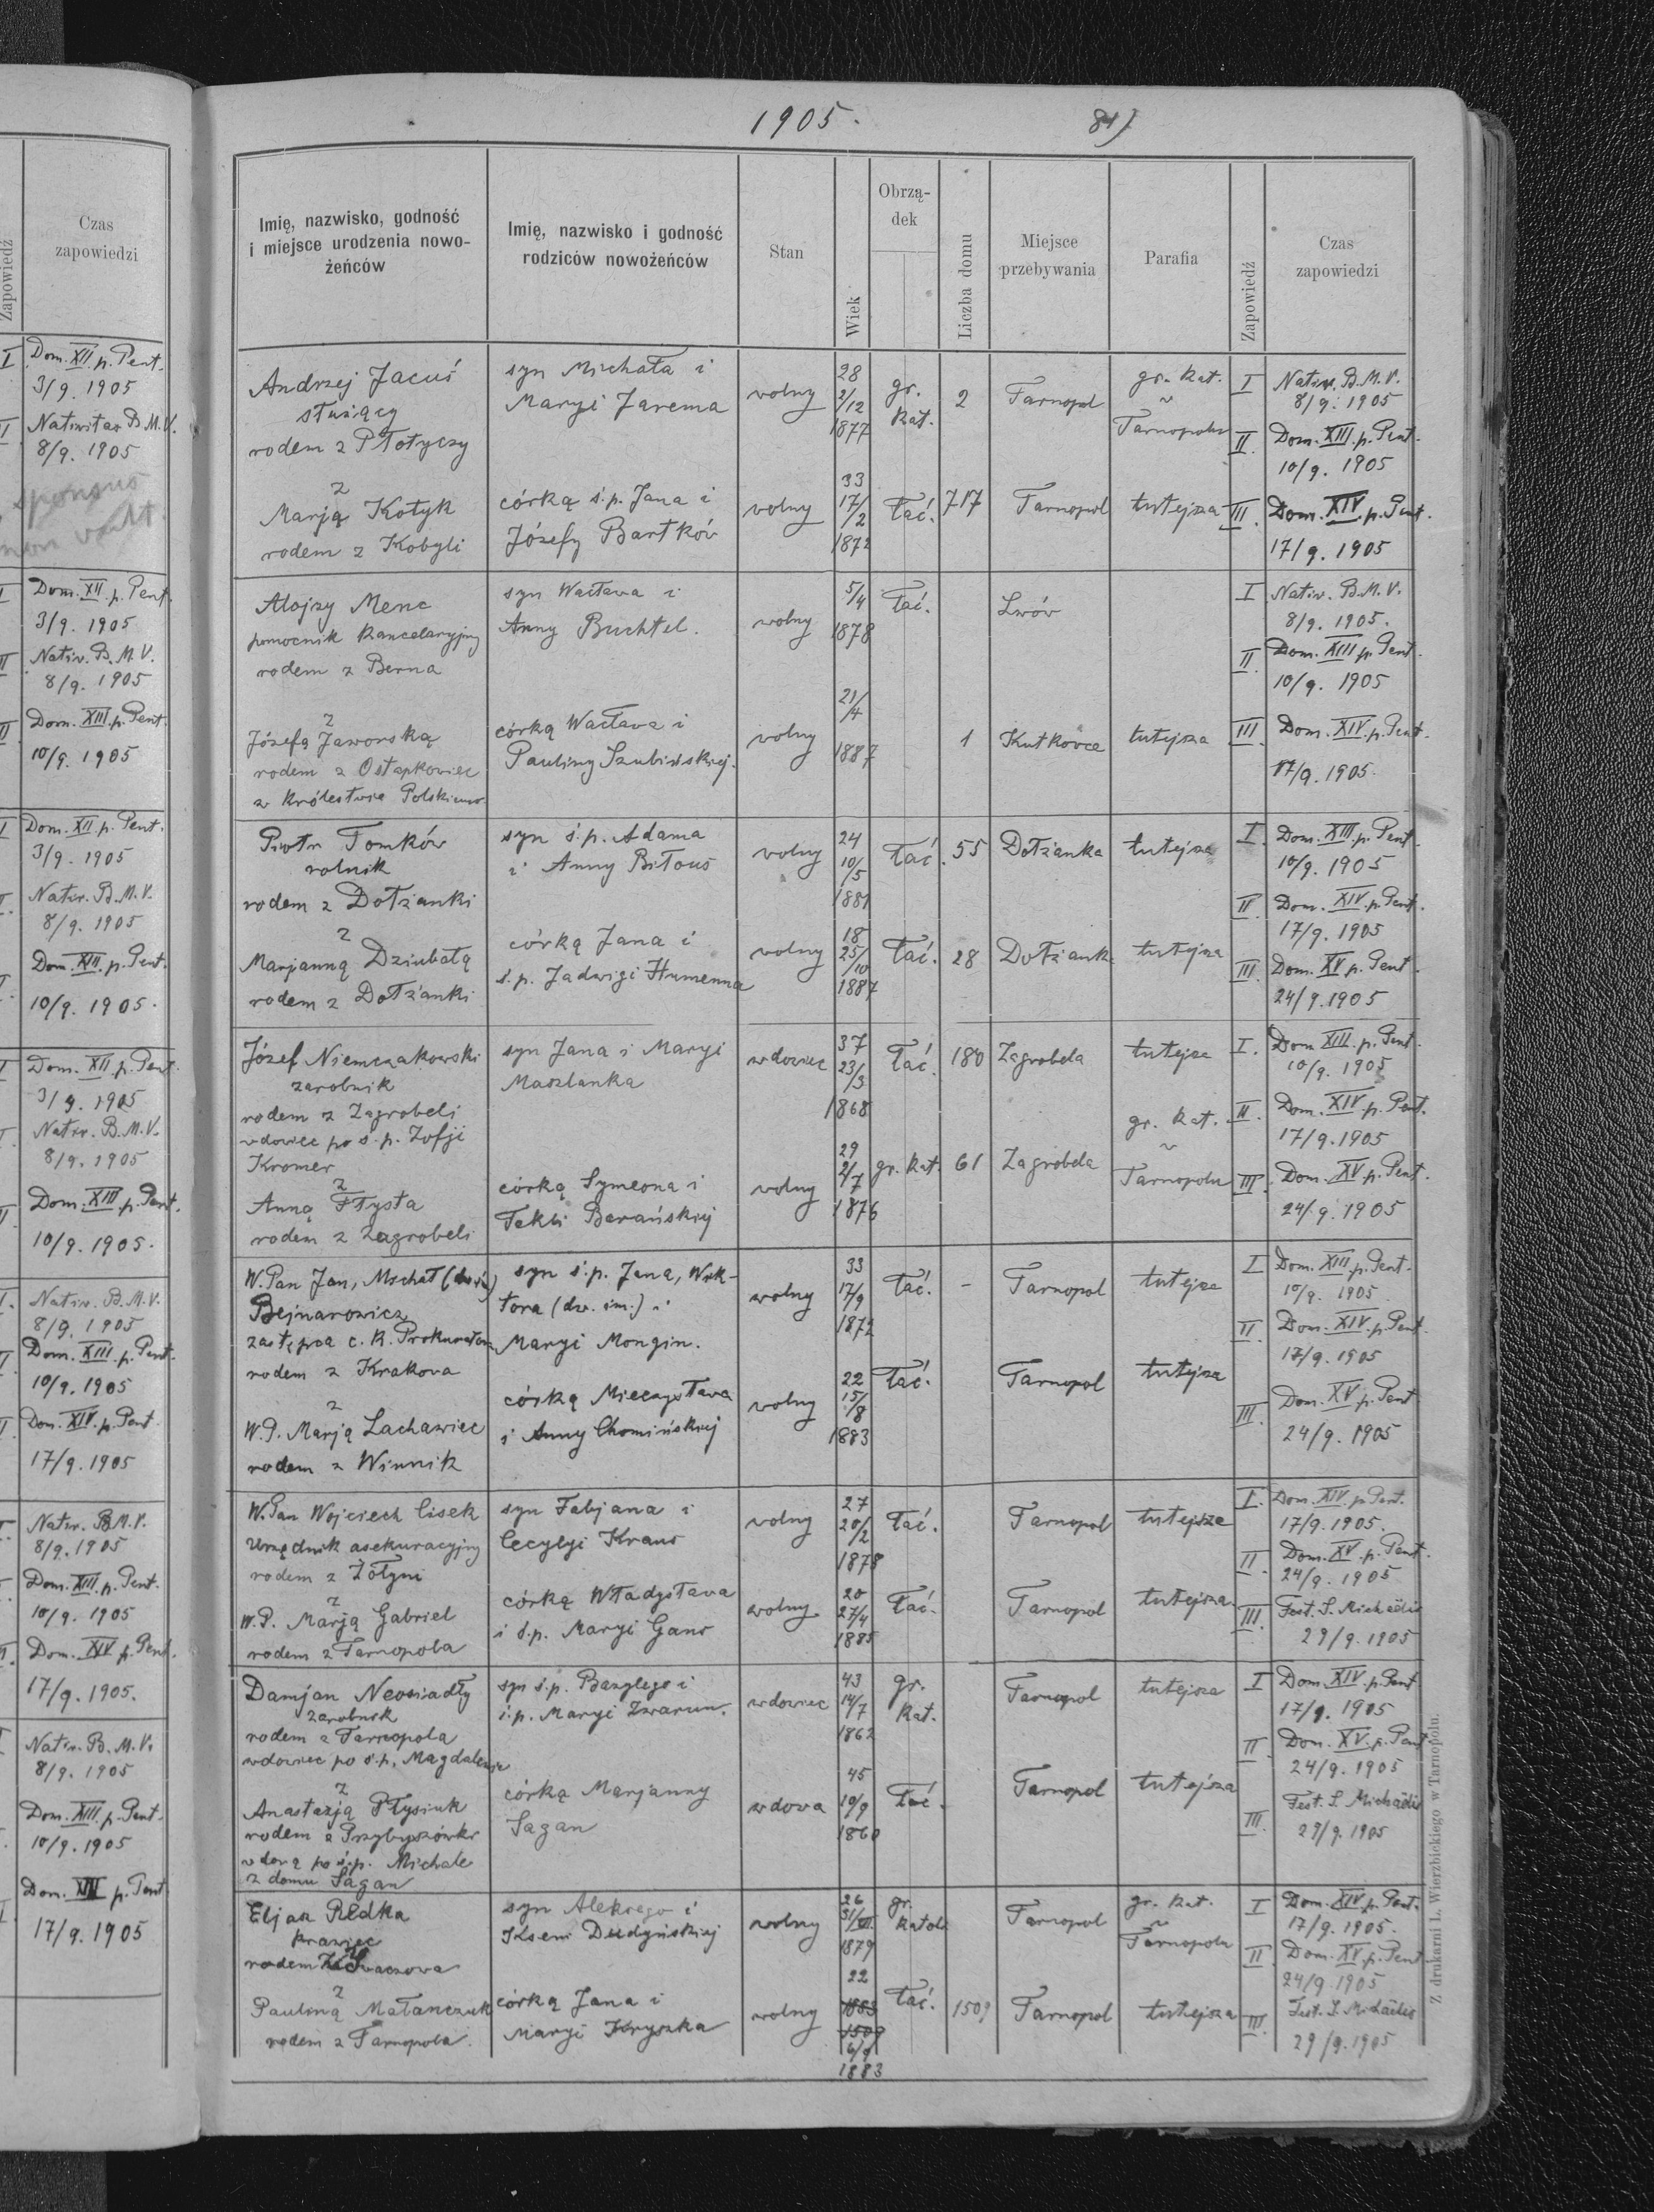 Zapowiedź
Czas
zapowiedzi
I Dom. XII. p. Pent.
3/9. 1905
II Nativitas B.M.V.
8/9. 1905
sponsus
non vult
I Dom. XII. p. Pent.
3/9. 1905
II Nativ. B.M.V.
8/9. 1905
II Dom. XIII. p. Pent.
10/9. 1905
I Dom. XII. p. Pent.
3/9. 1905
Nativ. B.M.V.
8/9. 1905
Dom. XIII. p. Pent.
10/9. 1905.
I Dom. XII. p. Pent.
3/9. 1905
Nativ. B.M.V.
8/9. 1905
II Dom. XIII p. Pent.
10/9. 1905.
I. Nativ. B.M.V.
8/9. 1905
II Dom. XIII. p. Pent.
10/9. 1905
II Dom. XIV. p. Pent.
17/9. 1905
Nativ. B.M.V.
8/9. 1905
Dom. XIII. p. Pent.
10/9. 1905
Dom. XIV p. Pent.
17/9. 1905.
Nativ. B.M.V.
8/9. 1905
Dom. XIII. p. Pent.
10/9. 1905
Dom. XIV p. Pent.
17/9. 1905
1905.
81)
Imię, nazwisko, godność
i miejsce urodzenia nowo-
żeńców
Imię, nazwisko i godność
rodziców nowożeńców
Stan
Wiek
Obrzą-
dek
Liczba domu
Miejsce
przebywania
Parafia
Zapowiedź
Czas
zapowiedzi
Andrzej Jacuś
służący
rodem z Płotyczy
syn Michała i
Maryi Jarema
wolny
28
2/12
1877
gr.
kat.
2
Tarnopol
gr. kat.
w
Tarnopolu
I Nativ. B.M.V.
8/9. 1905
II Dom. XIII. p. Pent.
10/9. 1905
z
Marją Kotyk
rodem z Kobyli
córką ś.p. Jana i
Józefy Bartków
wolny
33
17/2
1872
łać.
717
Tarnopol
tutejsza
III. Dom. XIV. p. Pent.
17/9. 1905
Alojzy Menc
pomocnik kancelaryjny
rodem z Berna
syn Wacława i
Anny Buchtel.
wolny
5/4
1878
łać.
Lwów
I Nativ. B.M.V.
8/9. 1905.
II Dom. XIII p. Pent.
10/9. 1905
z
Józefą Jaworską
rodem z Ostapkowiec
w Królestwie Polskiem
córką Wacława i
Pauliny Szubińskiej.
wolny
21/4
1887
1
Kutkowce
tutejsza
III. Dom. XIV. p. Pent.
17/9. 1905.
Piotr Tomków
rolnik
rodem z Dołżanki
syn ś.p. Adama
i Anny Biłous
wolny
24
10/5
1881
łać.
55
Dołżanka
tutejsza
I. Dom. XIII. p. Pent.
10/9. 1905
II Dom. XIV. p. Pent.
17/9. 1905
z
Marjanną Dziubatą
rodem z Dołżanki
córką Jana i
ś.p. Jadwigi Humenna
wolny
18
25/10
1887
łać.
28
Dołżank
tutejsza
III Dom. XV p. Pent.
24/9. 1905
Józef Niemczakowski
zarobnik
rodem z Zagrobeli
wdowiec po ś.p. Zofji
Kromer
syn Jana i Maryi
Maszlanka
wdowiec
37
23/3
1868
łać.
180
Zagrobela
tutejsze
I. Dom XIII. p. Pent.
10/9. 1905
II. Dom. XIV p. Pent.
17/9. 1905
z
Anną Płysta
rodem z Zagrobeli
córką Symeona i
Tekli Barańskiej
wolny
29
2/7
1876
gr. kat.
61
Zagrobela
gr. kat.
w
Tarnopolu
III. Dom. XV p. Pent.
24/9. 1905
W. Pan Jan, Michał (dw. im.)
Bejnarowicz
zastępca c. k. Prokuratora
rodem z Krakowa
syn ś.p. Jana, Wik-
tora (dw. im.) i
Maryi Mongin.
wolny
33
17/9
1872
łać.
-
Tarnopol
tutejsze
I Dom. XIII. p. Pent.
10/9. 1905.
II Dom. XIV. p. Pent.
17/9. 1905
z
W.P. Marją Lachawiec
rodem z Winnik
córką Mieczysława
i Anny Chomińskiej
wolny
22
15/8
1883
łać.
Tarnopol
tutejsza
III. Dom. XV p. Pent
24/9. 1905
W. Pan Wojciech Cisek
Urzędnik asekuracyjny
rodem z Żołyni
syn Fabjana i
Cecylyi Kraus
wolny
27
20/2
1878
łać.
Tarnopol
tutejsze
I. Dom. XIV. p. Pent.
17/9. 1905.
II Dom. XV. p. Pent.
24/9. 1905
z
W.P. Marją Gabriel
rodem z Tarnopola
córką Władysława
i ś.p. Maryi Gans
wolny
20
27/4
1885
łać.
Tarnopol
tutejsza
III. Fest. S. Michaëlis
29/9. 1905
Damjan Neosiadły
zarobnik
rodem z Tarnopola
wdowiec po ś.p. Magdalenie
syn ś.p. Bazylego i
ś.p. Maryi Zwarun.
wdowiec
43
14/7
1862
gr.
kat.
Tarnopol
tutejsza
I Dom. XIV. p. Pent
17/9. 1905
II Dom. XV. p. Pent
24/9. 1905
z
Anastazją Płysiuk
rodem z Przybyszówki
wdową po ś.p. Michale
z domu Sagan
córką Marjanny
Sagan
wdowa
45
10/9
1860
łać.
Tarnopol
tutejsza
III. Fest. S. Michaëlis
29/9. 1905
Eljasz Redka
krawiec
rodem
syn Aleksego i
Kseni Dudyńskiej
wolny
26
1879
gr.
katol.
Tarnopol
gr. kat.
w
Tarnopolu
I Dom. XIV p. Pent.
17/9. 1905.
II Dom. XV. p. Pent.
24/9. 1905
z
Pauliną Małanczuk
rodem z Tarnopola.
córką Jana i
Maryi Kryszka
wolny
22
1883
1509
6/9
1883
łać.
1509
Tarnopol
tutejsza
III. Fest. S. Michaëlis
29/9. 1905
Z drukarni L. Wierzbickiego w Tarnopolu.